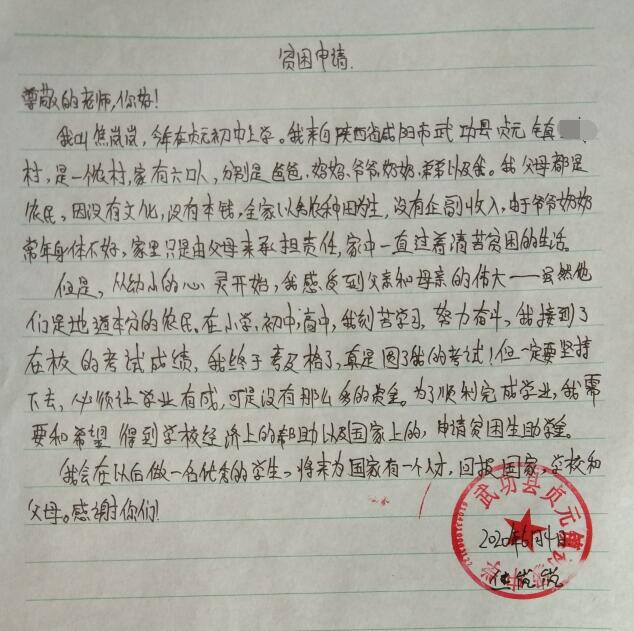 贫困申请
尊敬的老师,你好!
我叫焦岚岚,今年在贞元初中上学。我来自陕西省咸阳市武功县贞元镇
村,是一农村,家有六口人,分别是爸爸、妈妈、爷爷、奶奶、弟弟以及。我父母都是
农民,因没有文化,没有本钱,全家以务农种田为生,没有任何副收入,由于爷爷奶奶
常年身体不好,家里只是由父母来承担责任,家中一直过着清苦贫困的生活。
但是,从幼小的心灵开始,我感受到父亲和母亲的伟大——虽然他
们是地道本分的农民。在小学,初中,高中,我刻苦学习,努力奋斗,我接到了
在校的考试成绩,我终于考及格了,真是圆了我的考试!但一定要坚持
下去,必须让学业有成,可是没有那么多的资金。为了顺利完成学业,我需
要和希望得到学校经济上的帮助以及国家上的,申请贫困生助学金。
我会在以后做一名优秀的学生,将来为国家有一个人才,回报国家,学校和
父母。感谢你们!
武功县贞元镇
2020年6月4日